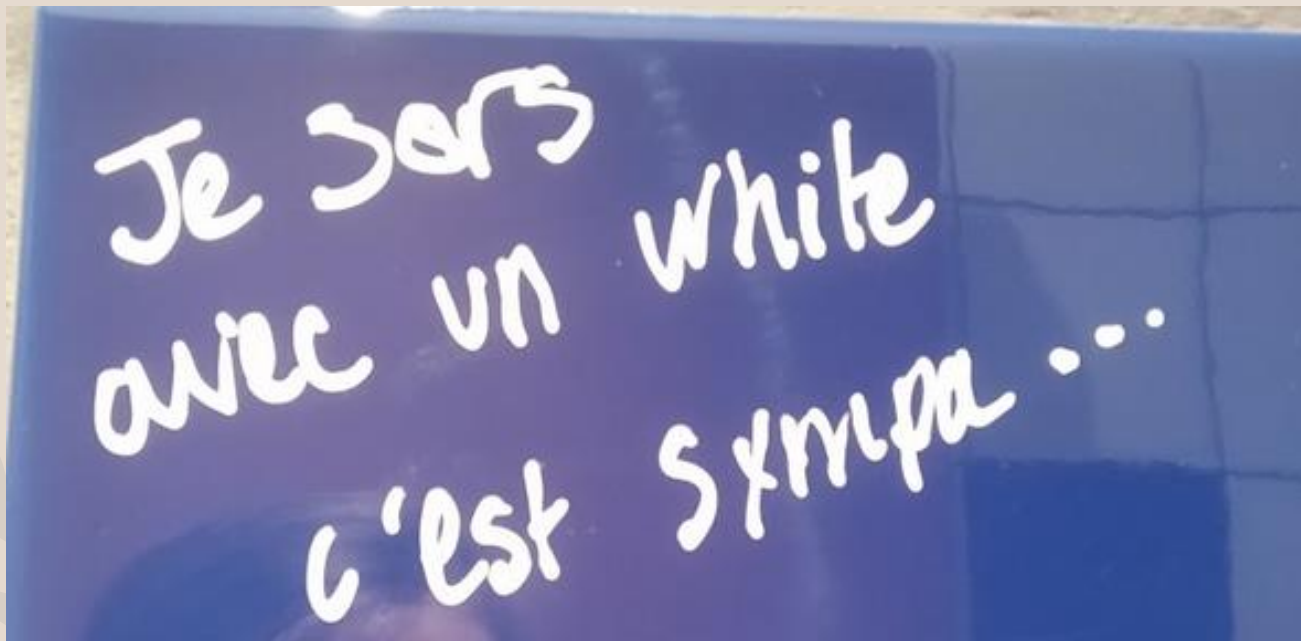 Je sors
avec un white
c'est sympa...